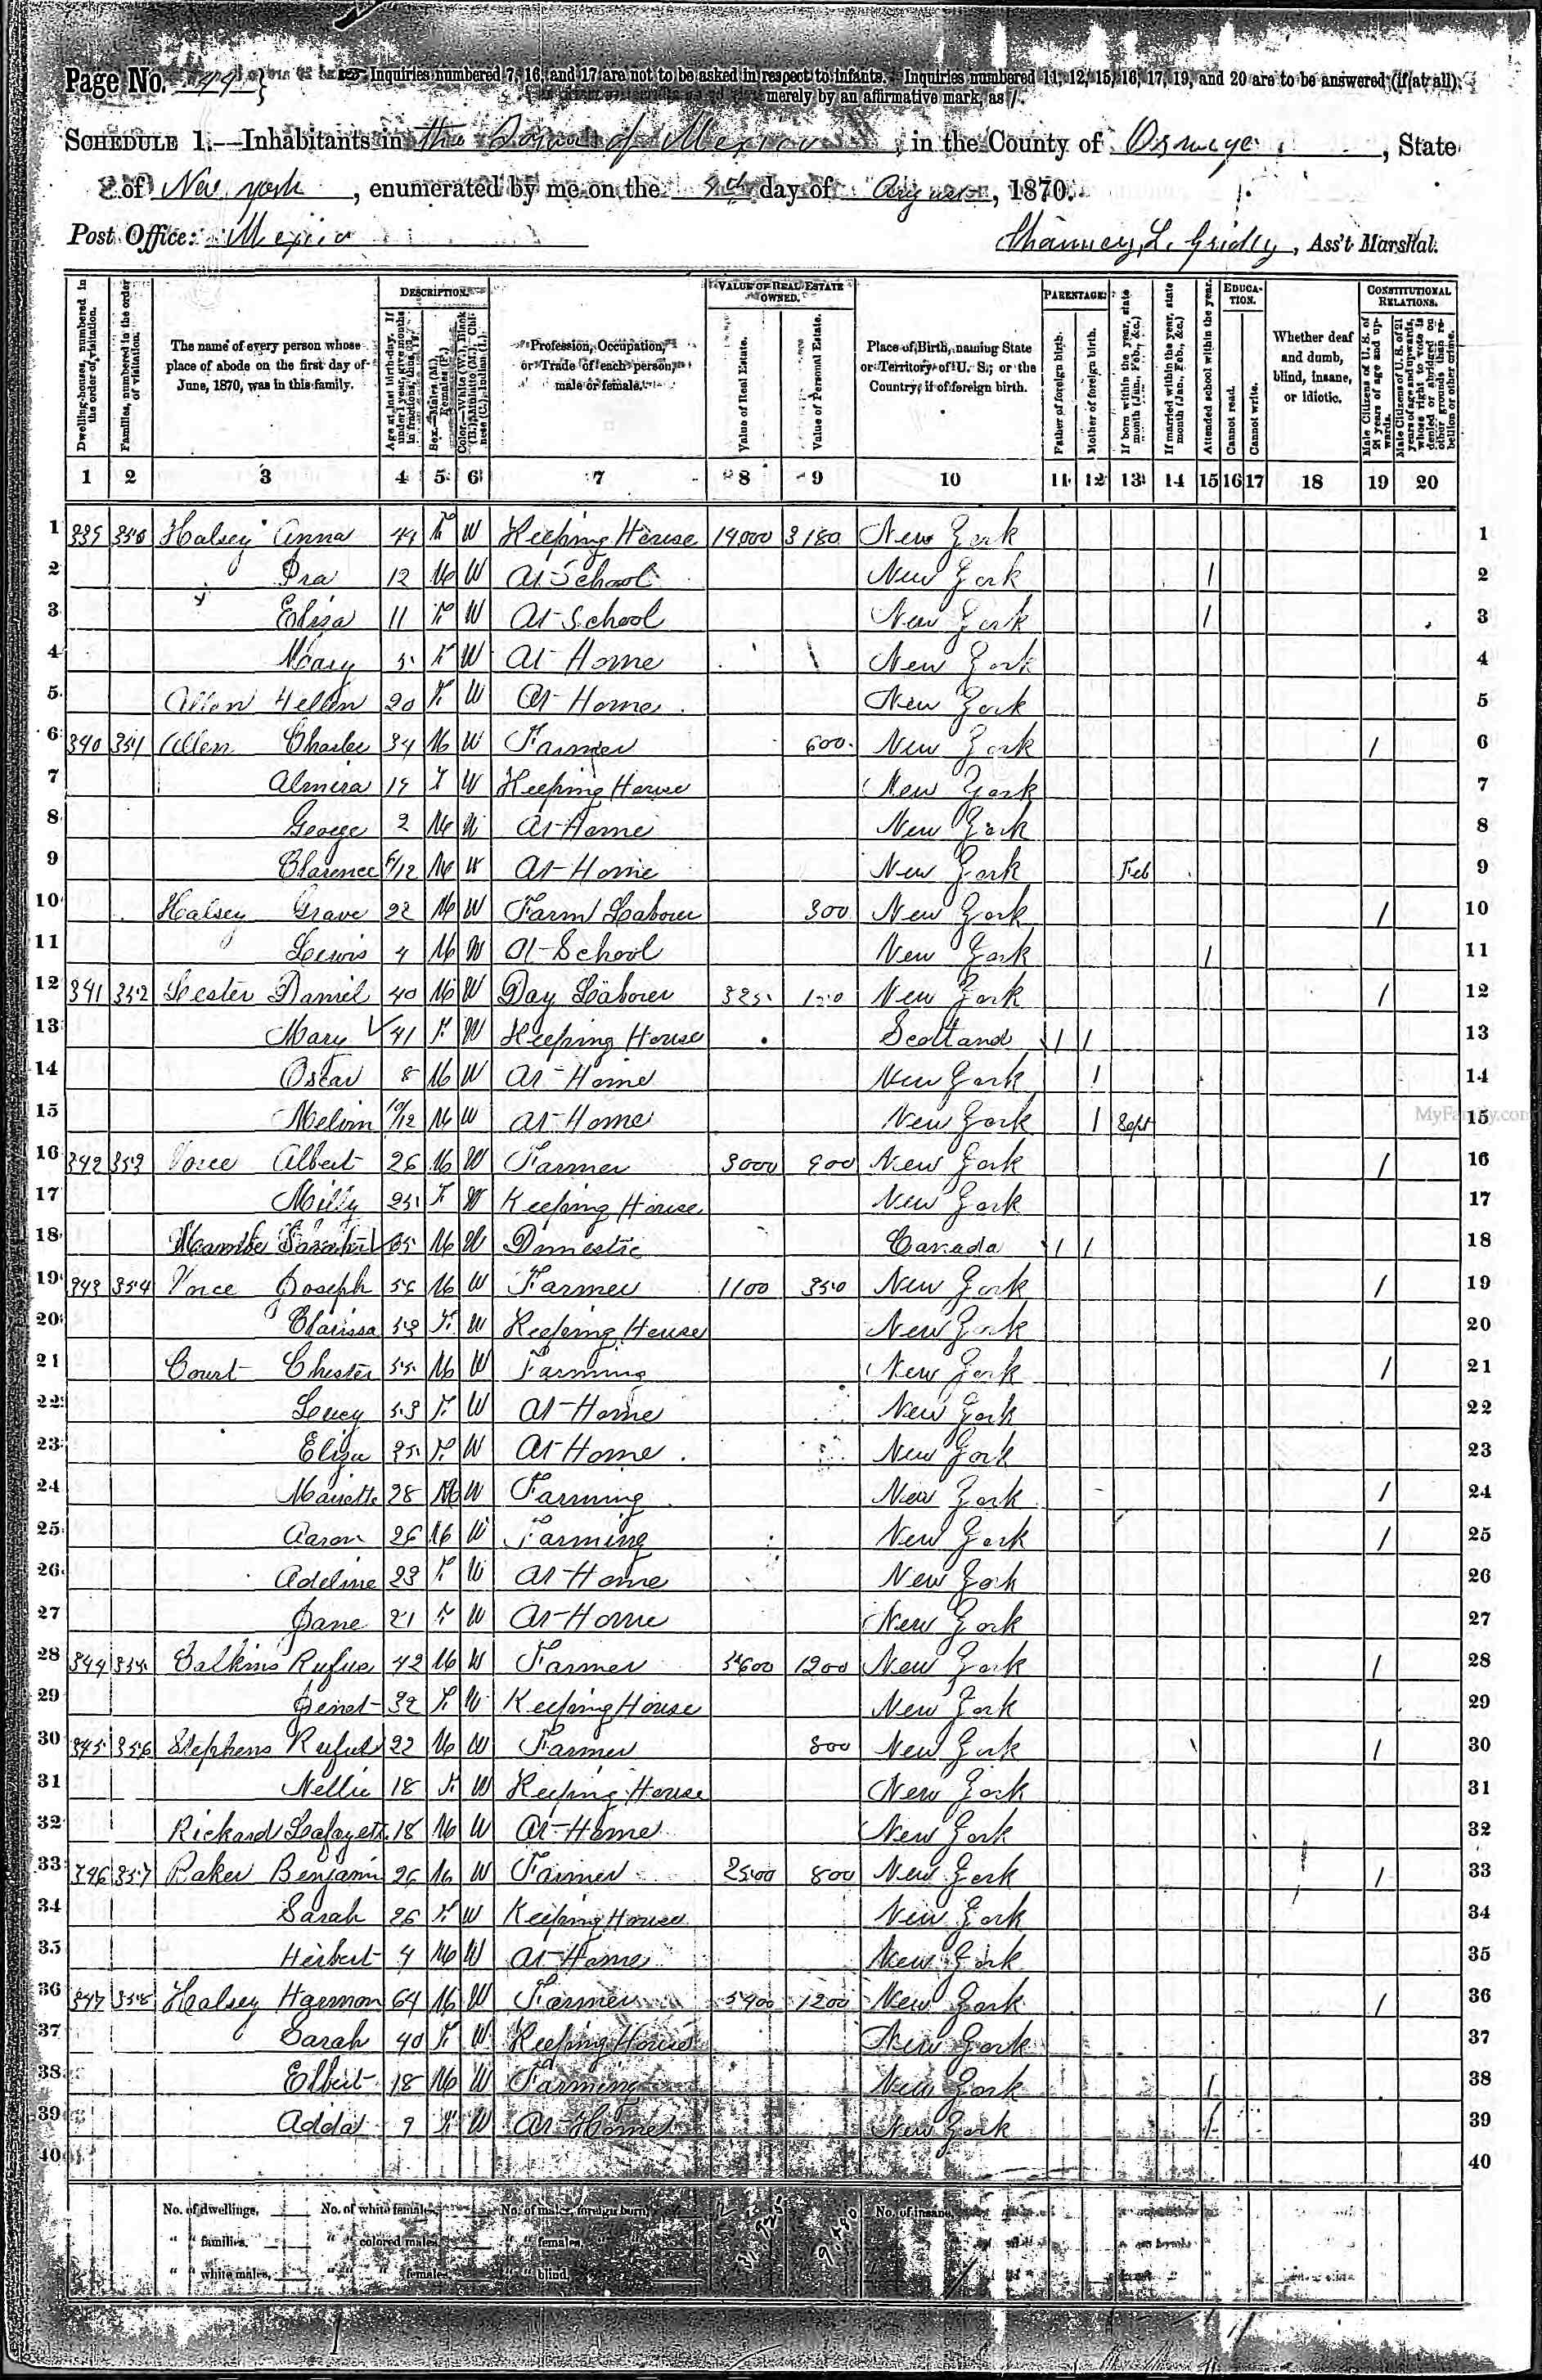 Page No. 44 } Inquiries numbered 7, 16, and 17 are not to be asked in respect to infants. Inquiries numbered 11, 12, 15, 16, 17, 19, and 20 are to be answered (if at all)
merely by an affirmative mark, as /.
SCHEDULE 1.—Inhabitants in the Town of Mexico, in the County of Oswego, State
of New York, enumerated by me on the day of August, 1870.
Post Office: Mexico
Chauncey L. Gridley, Ass't Marshal.
Dwelling-houses, numbered in the order of visitation.
Families, numbered in the order of visitation.
The name of every person whose place of abode on the first day of June, 1870, was in this family.
DESCRIPTION.
Age at last birth-day. If under 1 year, give months in fractions, thus,
Sex.—Males (M.), Females (F.)
Color.—White (W.), Black (B.), Mulatto (M.), Chinese (C.), Indian (I.)
Profession, Occupation, or Trade of each person, male or female.
VALUE OF REAL ESTATE OWNED.
Value of Real Estate.
Value of Personal Estate.
Place of Birth, naming State or Territory of U. S.; or the Country, if of foreign birth.
PARENTAGE.
Father of foreign birth.
Mother of foreign birth.
If born within the year, state month (Jan., Feb., &c.)
If married within the year, state month (Jan., Feb., &c.)
Attended school within the year.
EDUCATION.
Cannot read.
Cannot write.
Whether deaf and dumb, blind, insane, or idiotic.
CONSTITUTIONAL RELATIONS.
Male Citizens of U. S. of 21 years of age and upwards.
Male Citizens of U. S. of 21 years of age and upwards, whose right to vote is denied or abridged on other grounds than rebellion or other crime.
1 2 3 4 5 6 7 8 9 10 11 12 13 14 15 16 17 18 19 20
1 339 350 Halsey Anna 44 F W Keeping House 14000 3180 New York 1
2 Ira 12 M W At School New York / 2
3 Eliza 11 F W At School New York / 3
4 Mary 5 F W At Home New York 4
5 Allen Hellen 20 F W At Home New York 5
6 340 351 Allen Charles 34 M W Farmer 600 New York / 6
7 Almira 19 F W Keeping House New York 7
8 George 2 M W At Home New York 8
9 Clarence /12 M W At Home New York Feb 9
10 Halsey Grave 22 M W Farm Laborer 300 New York / 10
11 Lewis 4 M W At School New York / 11
12 341 352 Lester Daniel 40 M W Day Laborer 325 New York / 12
13 Mary 41 F W Keeping House Scotland / / 13
14 Oscar 8 M W At Home New York / 14
15 Melvin 10/12 M W At Home New York / Sept 15
16 342 353 Vorce Albert 26 M W Farmer 3000 900 New York / 16
17 Milly 25 F W Keeping House New York 17
18 65 M W Domestic Canada / / 18
19 343 354 Vorce Joseph 56 M W Farmer 1100 350 New York / 19
20 Clarissa 53 F W Keeping House New York 20
21 Court Chester 55 M W Farming New York / 21
22 Lucy 53 F W At Home New York 22
23 Eliza F W At Home New York 23
24 Mariette 28 M W Farming New York / 24
25 Aaron 26 M W Farming New York / 25
26 Adeline 23 F W At Home New York 26
27 Jane 21 F W At Home New York 27
28 344 355 Calkins Rufus 42 M W Farmer 5600 1200 New York / 28
29 Jenet 32 F W Keeping House New York 29
30 345 356 Stephens Rufus 22 M W Farmer 300 New York / 30
31 Nellie 18 F W Keeping House New York 31
32 Rickard Lafayett 18 M W At Home New York 32
33 346 357 Baker Benjamin 26 M W Farmer 2500 800 New York / 33
34 Sarah 26 F W Keeping House New York 34
35 Herbert 4 M W At Home New York 35
36 347 358 Halsey Harmon 64 M W Farmer 5400 1200 New York / 36
37 Sarah 40 F W Keeping House New York 37
38 Elbert 18 M W Farming New York / 38
39 Adda 9 F W At Home New York / 39
40 40
MyFamily.com
No. of dwellings, No. of white females, No. of males, foreign born, No. of insane,
" " families, " " colored males, " " females,
" " white males, " " " females " " blind,